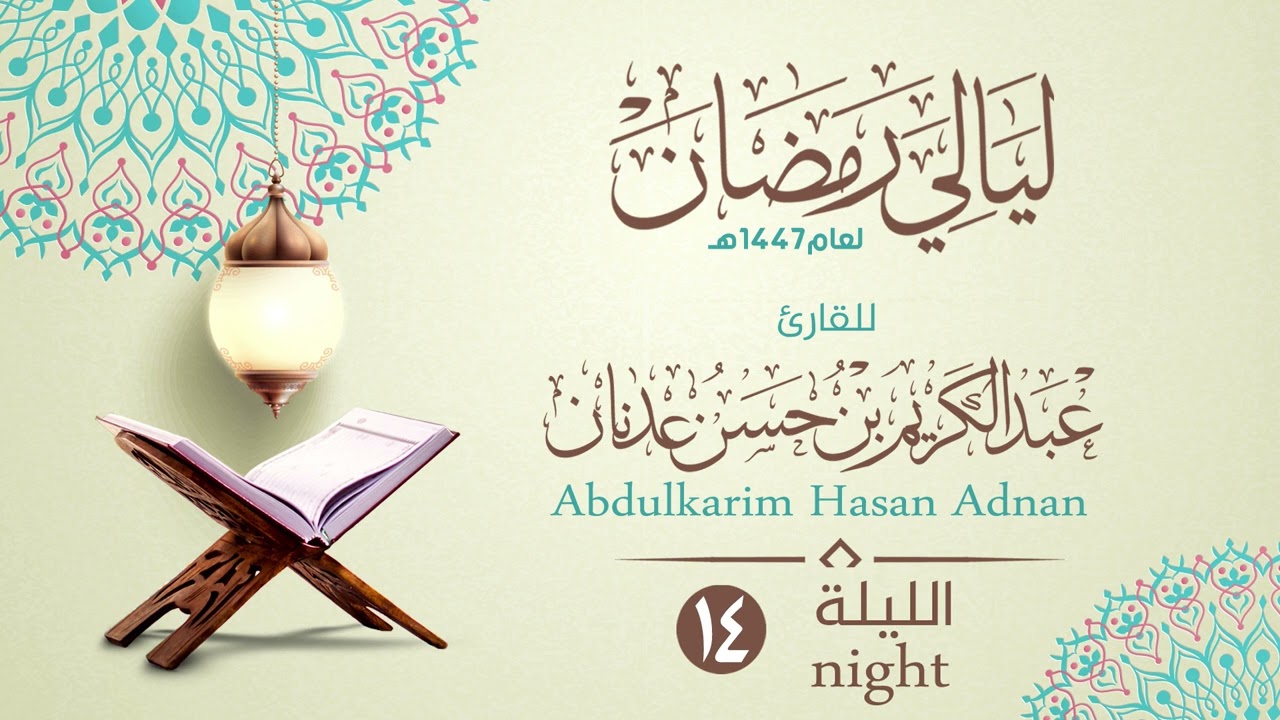 لَيَالِي رَمَضَانَ
لعام1447هـ
للقارئ
عَبْدالكَرِيْم بِنْ حَسَنُ عَدنان
Abdulkarim Hasan Adnan
الليلة
١٤
night